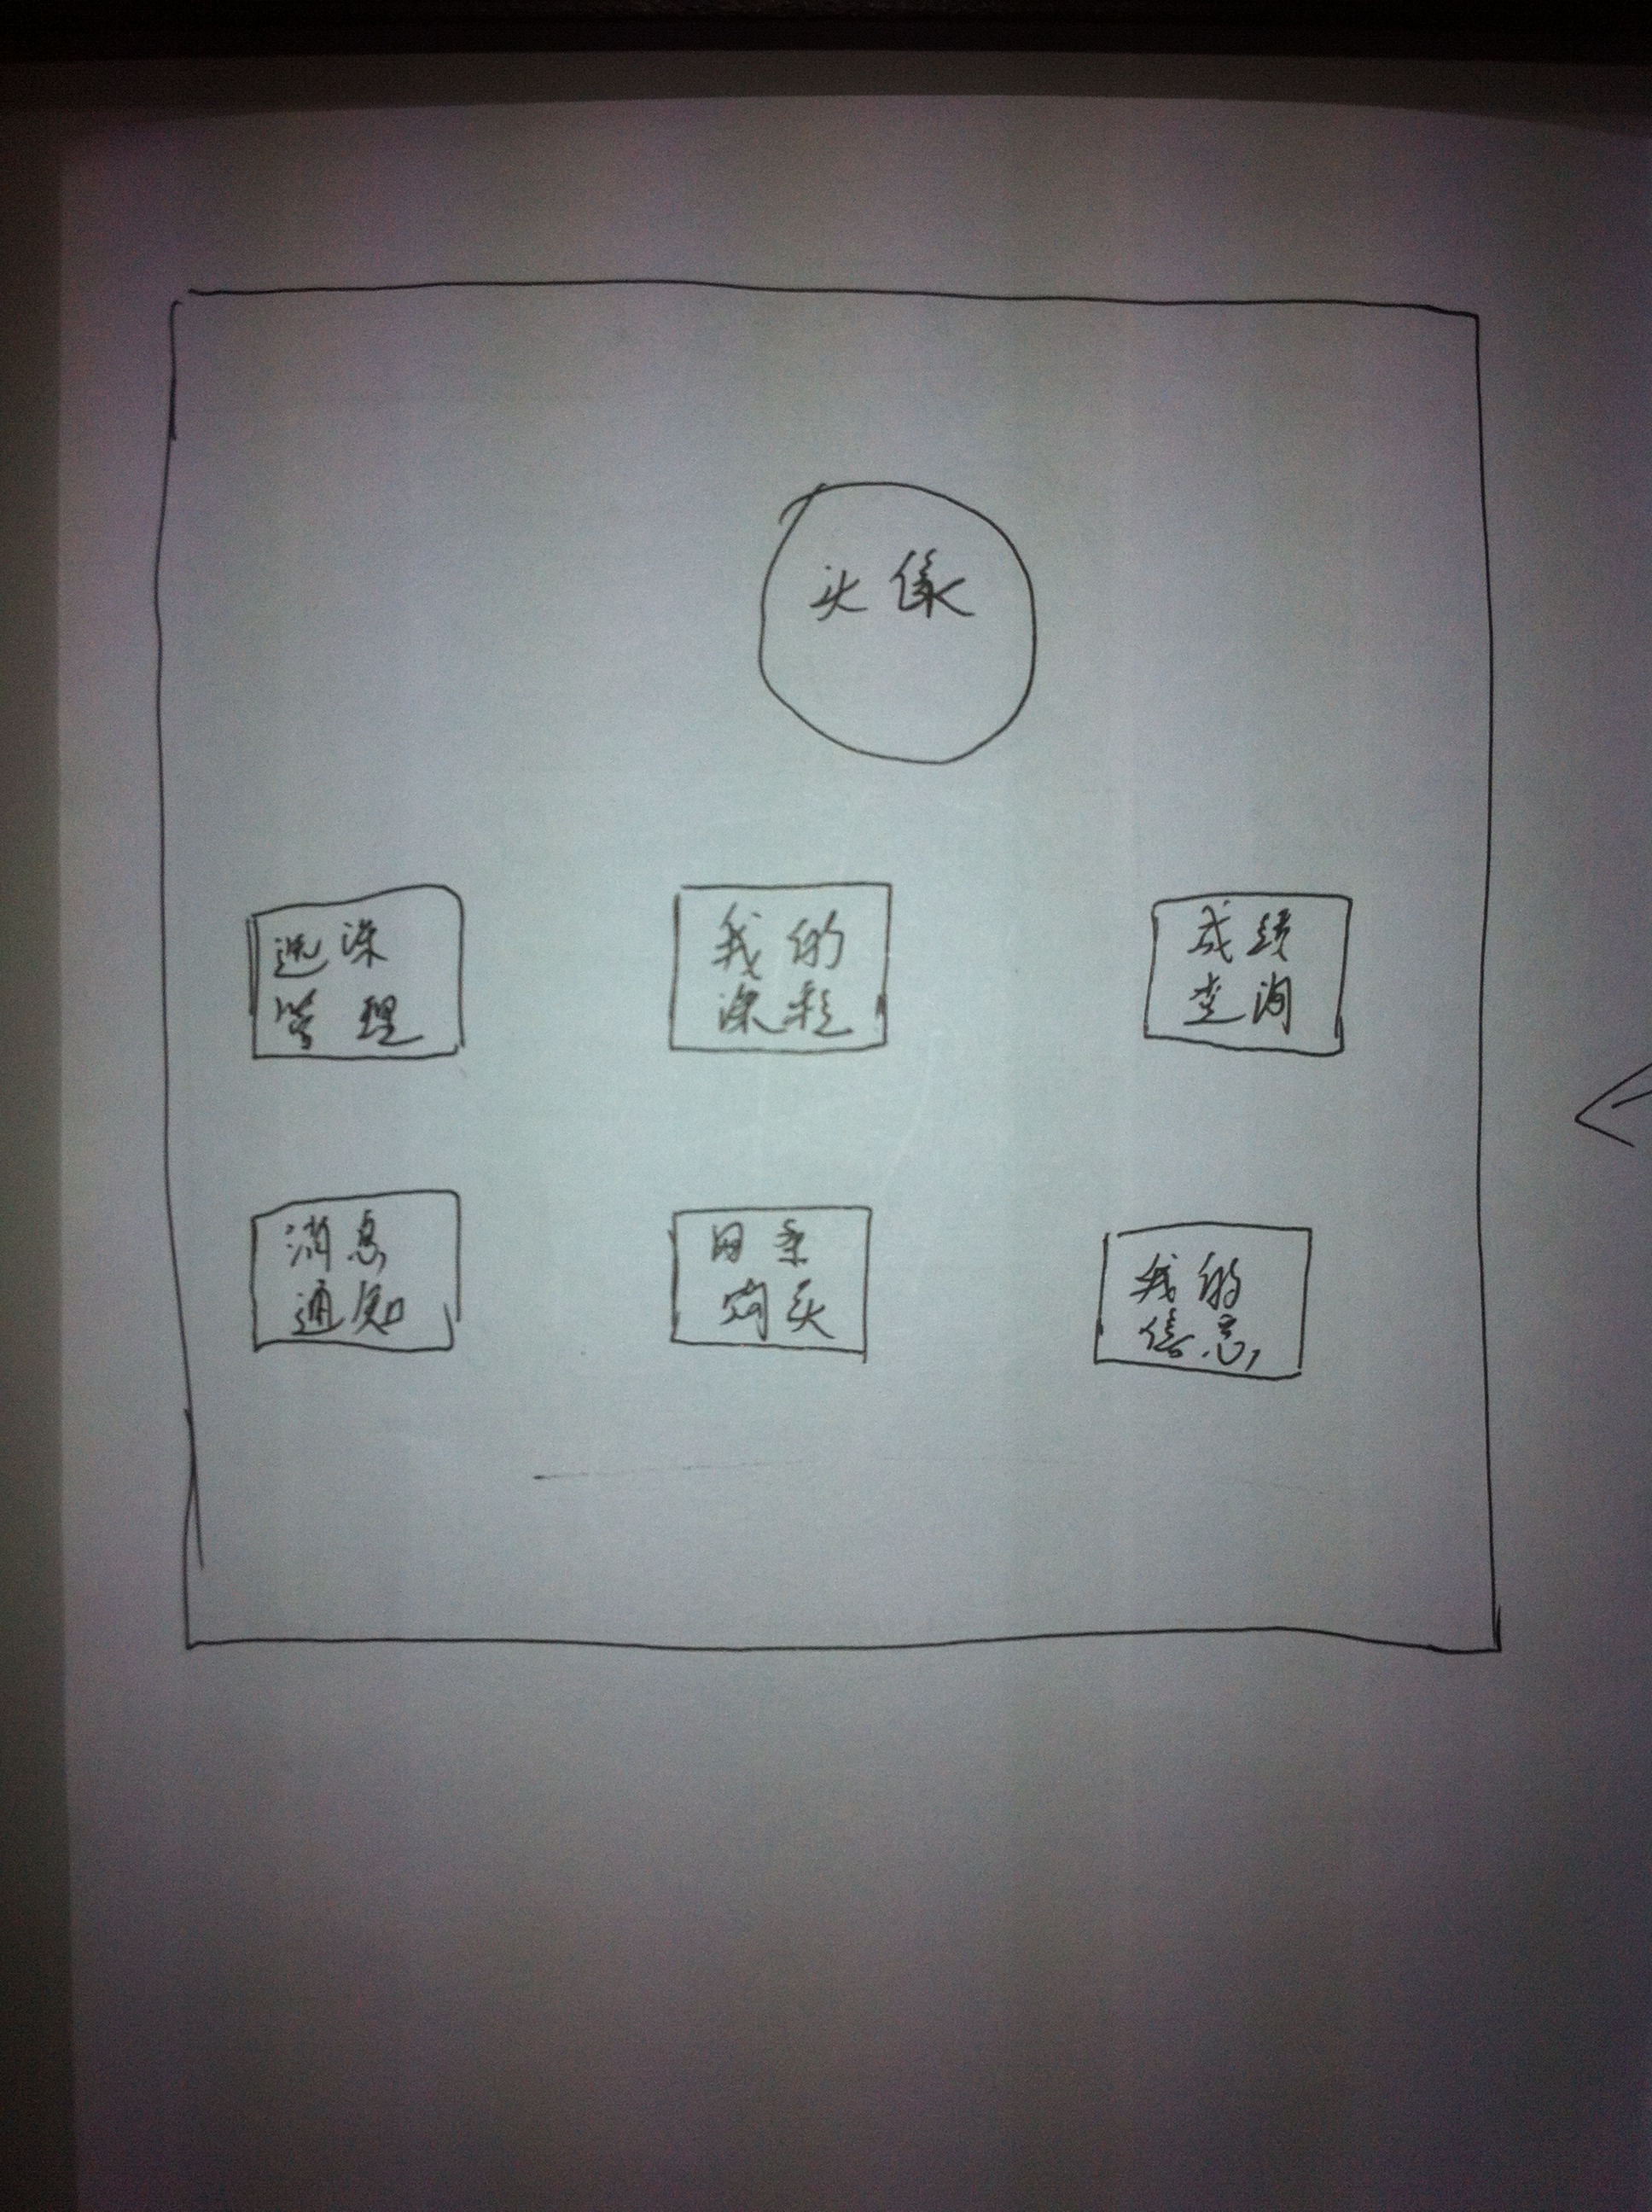 头像
选课
管理
我的
课程
成绩
查询
消息
通知
购买
我的
信息